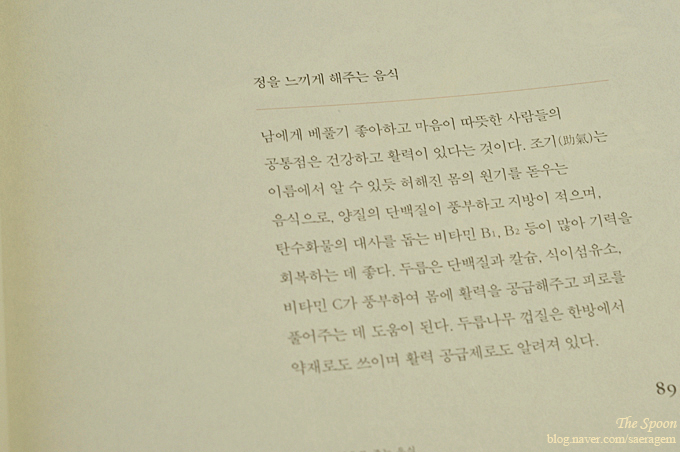 정을 느끼게 해주는 음식
남에게 베풀기 좋아하고 마음이 따뜻한 사람들의
공통점은 건강하고 활력이 있다는 것이다. 조기(助氣)는
이름에서 알 수 있듯 허해진 몸의 원기를 돋우는
음식으로, 양질의 단백질이 풍부하고 지방이 적으며,
탄수화물의 대사를 돕는 비타민 B₁, B₂ 등이 많아 기력을
회복하는 데 좋다. 두릅은 단백질과 칼슘, 식이섬유소,
비타민 C가 풍부하여 몸에 활력을 공급해주고 피로를
풀어주는 데 도움이 된다. 두릅나무 껍질은 한방에서
약재로도 쓰이며 활력 공급제로도 알려져 있다.
89
The Spoon
blog.naver.com/saeragem
음식